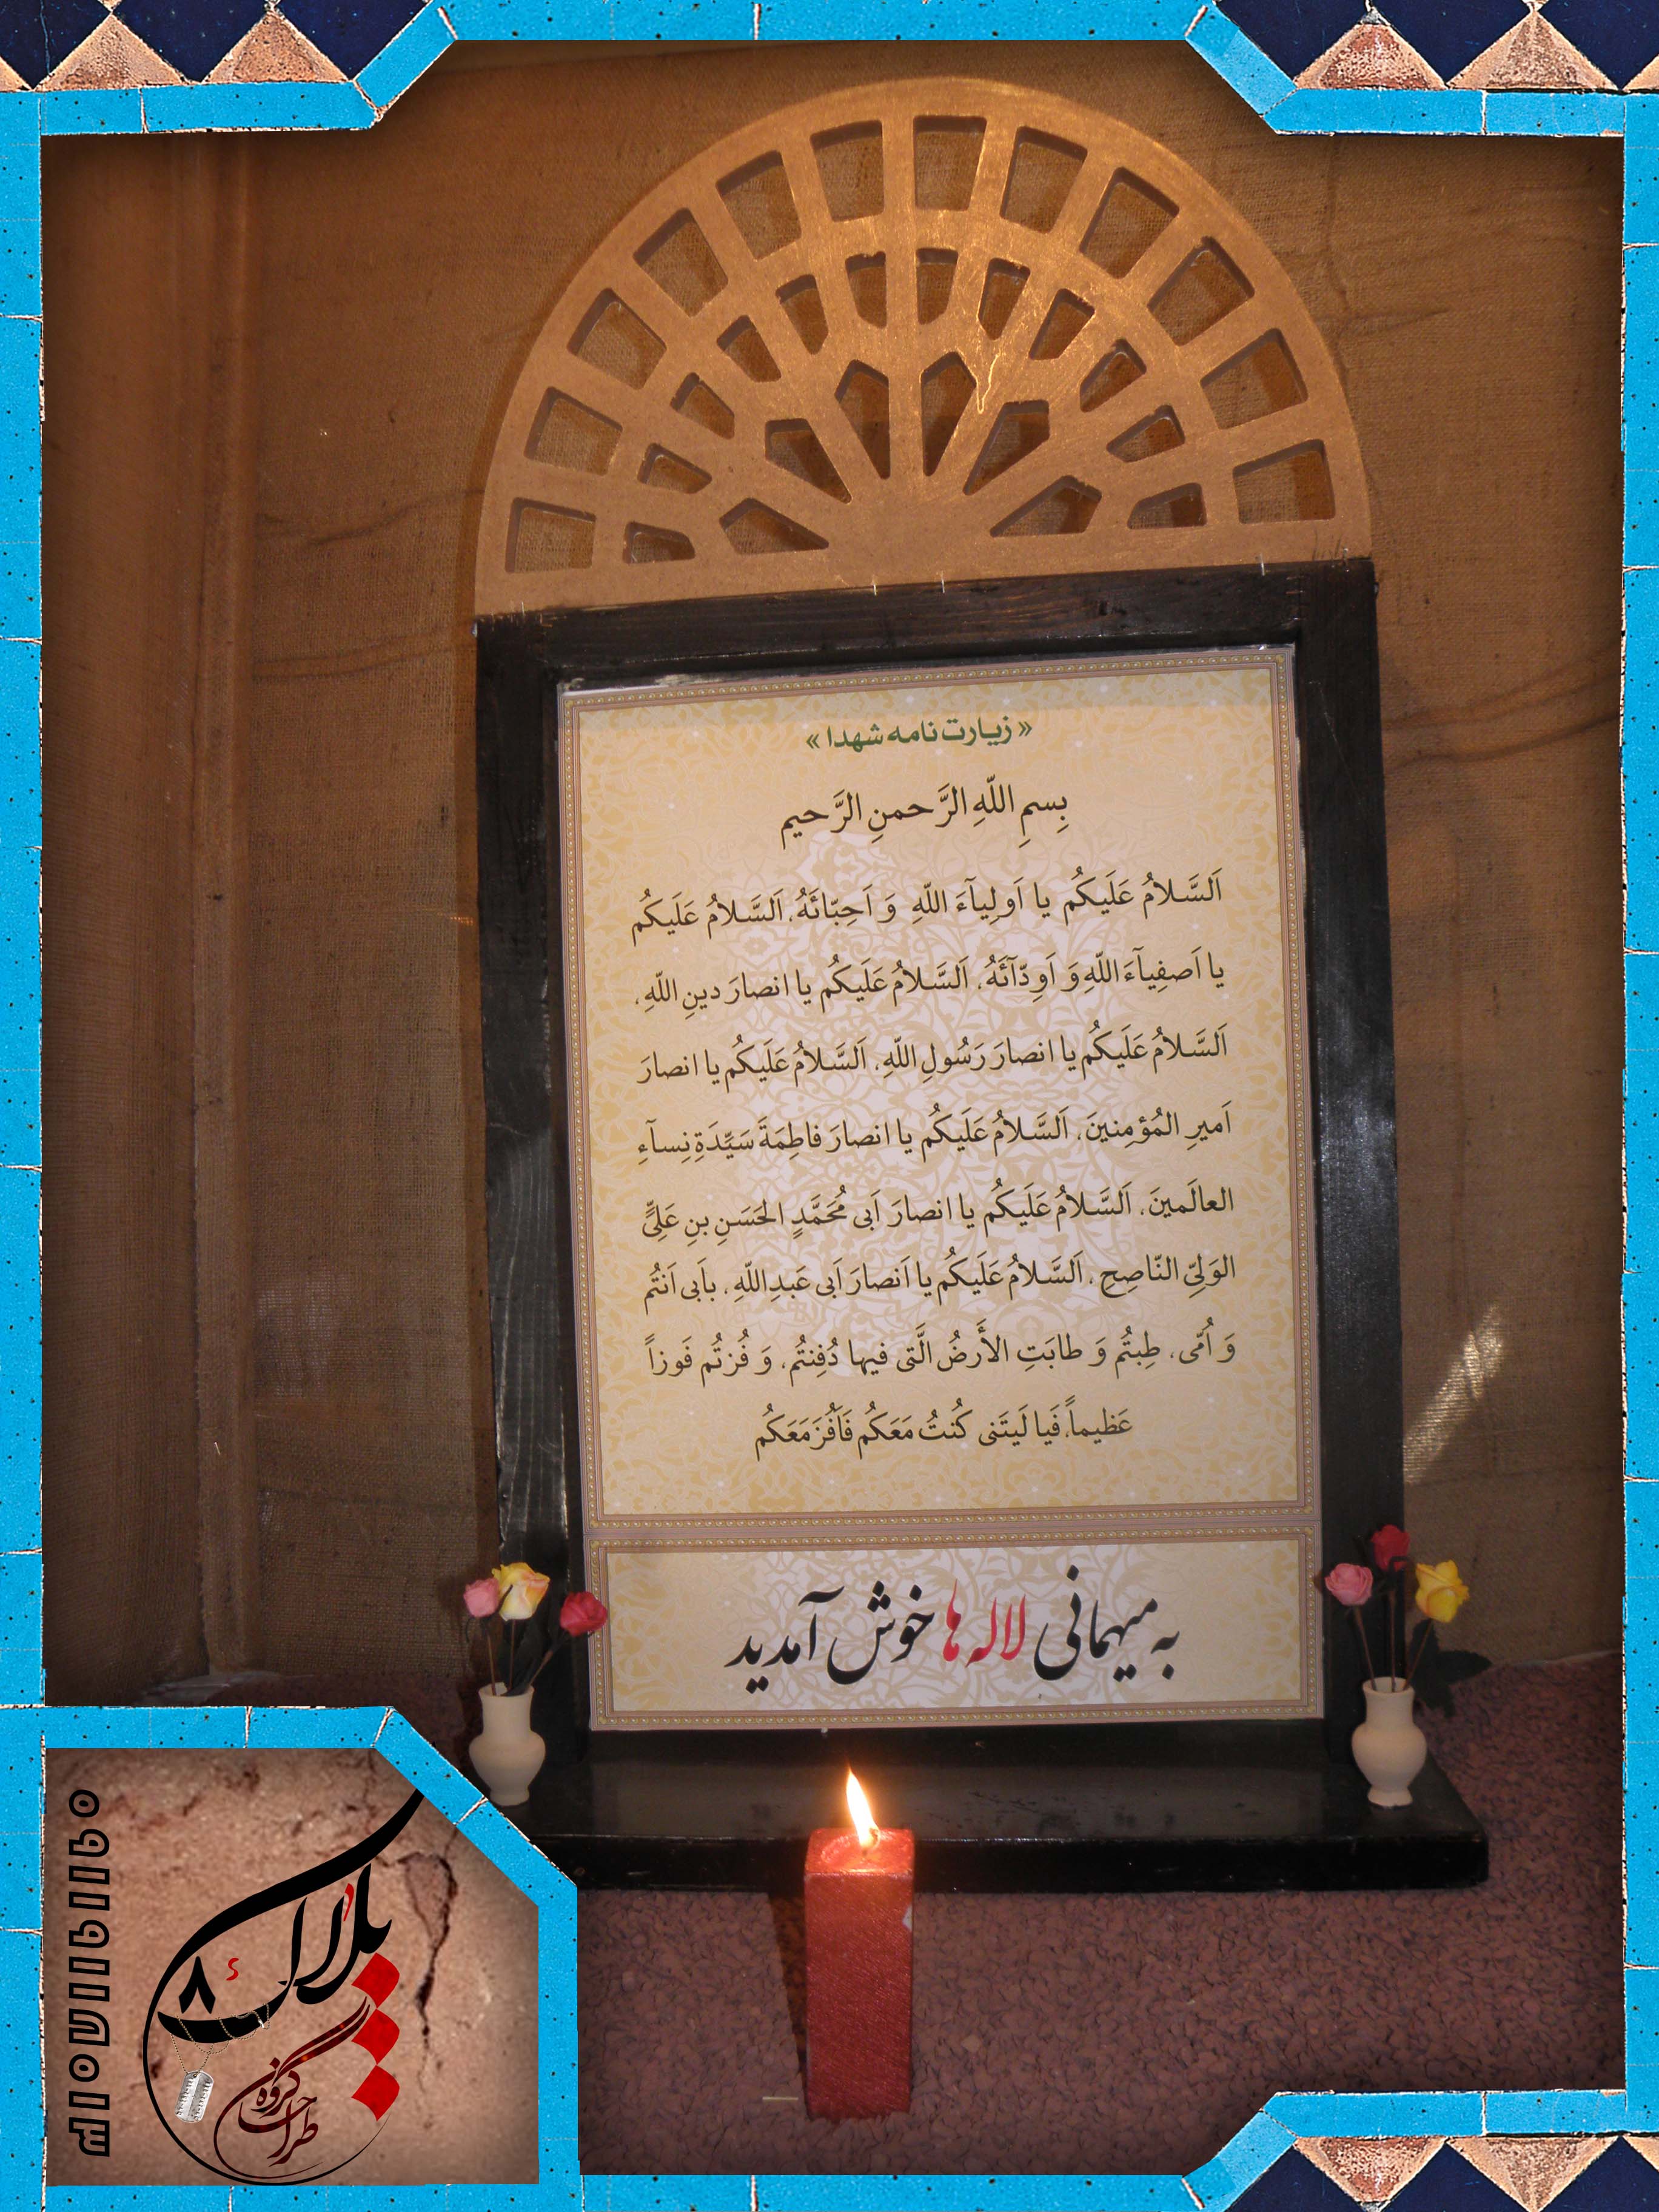 « زیارت نامه شهدا »
بِسمِ اللّهِ الرَّحمنِ الرَّحیم
اَلسَّلامُ عَلَیکُم یا اَولِیآءَ اللّهِ وَ اَحِبّائَهُ، اَلسَّلامُ عَلَیکُم
یا اَصفِیآءَ اللّهِ وَ اَوِدّآئَهُ، اَلسَّلامُ عَلَیکُم یا انصارَ دینِ اللّهِ،
اَلسَّلامُ عَلَیکُم یا انصارَ رَسُولِ اللّهِ، اَلسَّلامُ عَلَیکُم یا انصارَ
اَمیرِ المُؤمِنینَ، اَلسَّلامُ عَلَیکُم یا انصارَ فاطِمَةَ سَیِّدَةِ نِسآءِ
العالَمینَ، اَلسَّلامُ عَلَیکُم یا انصارَ اَبی مُحَمَّدٍ الحَسَنِ بنِ عَلِیٍّ
الوَلِیِّ النّاصِحِ، اَلسَّلامُ عَلَیکُم یا اَنصارَ اَبی عَبدِاللّهِ، بِاَبی اَنتُم
وَ اُمّی، طِبتُم وَ طابَتِ الأَرضُ الَّتی فیها دُفِنتُم، وَ فُزتُم فَوزاً
عَظیماً، فَیا لَیتَنی کُنتُ مَعَکُم فَاَفُزَ مَعَکُم
به میهمانی لاله ها خوش آمدید
پلاک ۸
گروه
طراحان